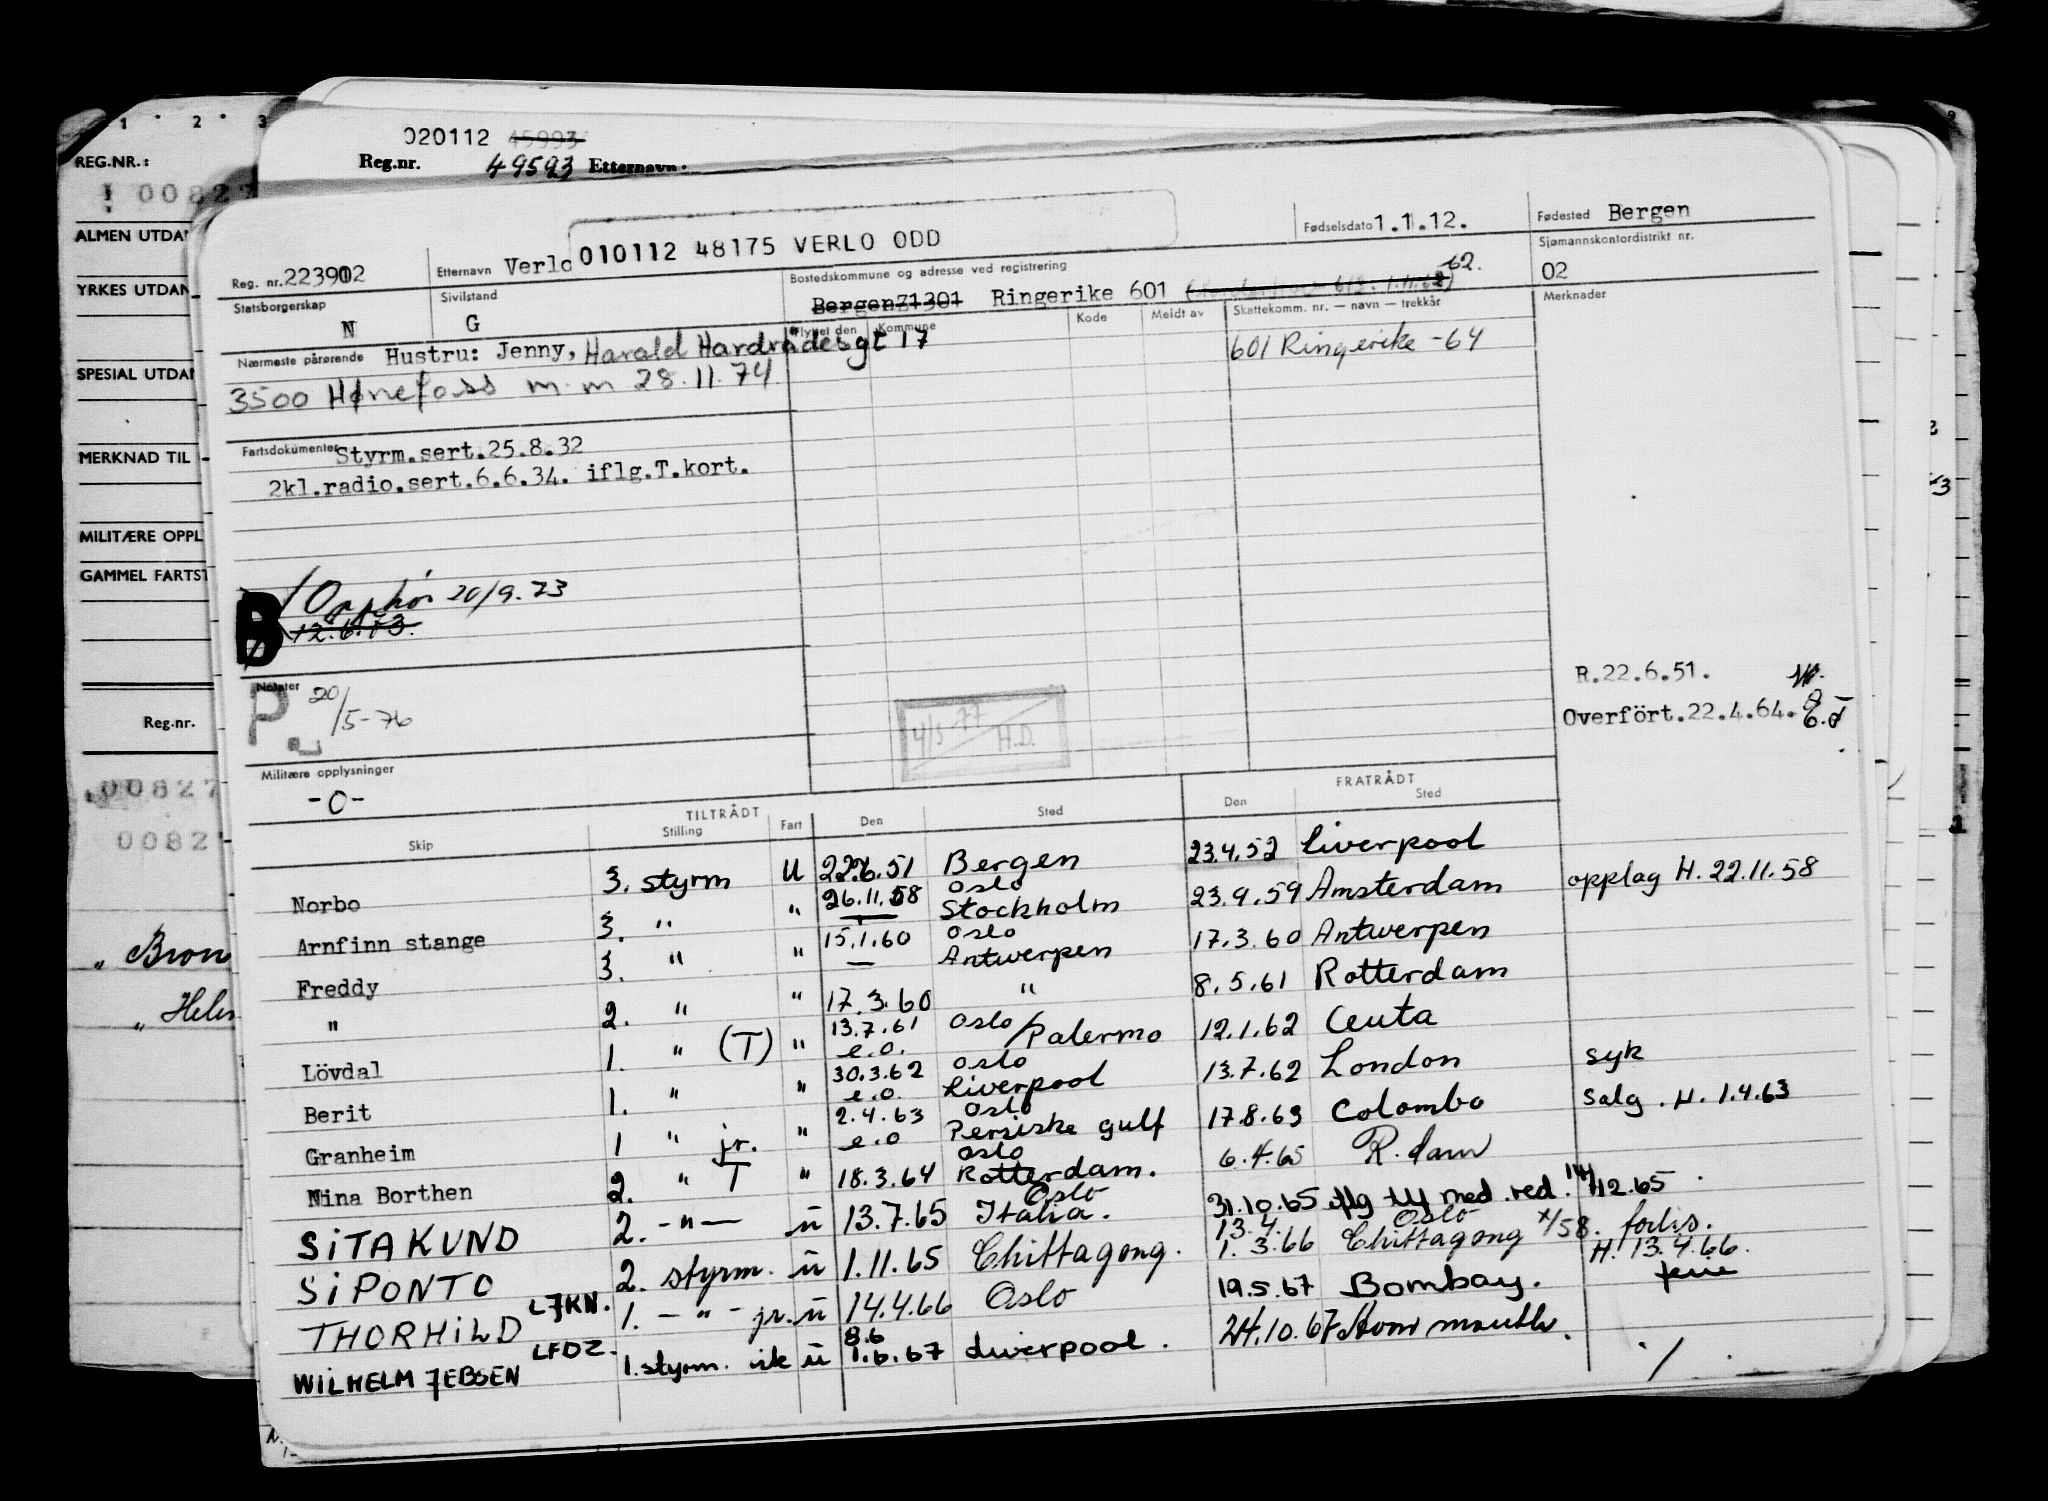 1 2 3
REG.NR.:
! 00827
ALMEN UTDA
YRKES UTDAN
SPESIAL UTDA
MERKNAD TIL
MILITÆRE OPPL
GAMMEL FARTST
Reg.nr.
00827
0082
" Bron
" Hele
020112 45993
Reg.nr. 49593 Etternavn.
010112 48175 VERLO ODD
Fødselsdato 1.1.12.
Fødested Bergen
Reg. nr. 223902
Etternavn Verlo
Bostedskommune og adresse ved registrering
Sjømannskontordistrikt nr.
02
Statsborgerskap
N
Sivilstand
G
Bergen 71301 Ringerike 601
Flyttet den Kommune Kode Meldt av Skattekomm. nr. — navn — trekkår
Merknader
Nærmeste pårørende Hustru: Jenny, Harald Hardrådesgt 17
601 Ringerike -64
3500 Hønefoss m.m 28.11.74.
Fartsdokumenter Styrm.sert.25.8.32
2kl.radio.sert.6.6.34. iflg.T.kort.
B Opphör 20/9.73
12.6.73.
Notater
P 20/5-76
4/3 77 H.D.
R.22.6.51.
Overfört.22.4.64.
Militære opplysninger
-0-
TILTRÅDT FRATRÅDT
Skip Stilling Fart Den Sted Den Sted
Norbo 3. styrm U 22.6.51 Bergen 23.4.52 Liverpool
Arnfinn stange 3. " " 26.11.58 Oslo Stockholm 23.9.59 Amsterdam opplag H. 22.11.58
Freddy 3. " " 15.1.60 Oslo Antwerpen 17.3.60 Antwerpen
" 2. " " 17.3.60 " 8.5.61 Rotterdam
Lövdal 1. " (T) " 13.7.61 e.o. Oslo/Palermo 12.1.62 Ceuta
Berit 1. " " 30.3.62 e.o. Oslo Liverpool 13.7.62 London syk
Granheim 1 " jr. " 2.4.63 e.o Oslo Persiske gulf 17.8.63 Colombo Salg. H. 1.4.63
Nina Borthen 2. " T " 18.3.64 Oslo Rotterdam. 6.4.65 R.dam
SITAKUND 2. -"- ü 13.7.65 Oslo Italia. 31.10.65 iflg tlf med red. 14/12.65
SIPONTO 2. styrm. ü 1.11.65 Chittagong. 13.4. 1.3.66 Oslo Chittagong x/58. forlis. H. 13.4.66.
THORHILD LJKN. 1. -"- jr. ü 14.4.66 Oslo 19.5.67 Bombay. ferie
WILHELM JEBSEN LFDZ. 1.styrm. vik ü 8.6 1.6.67 Liverpool. 24.10.67